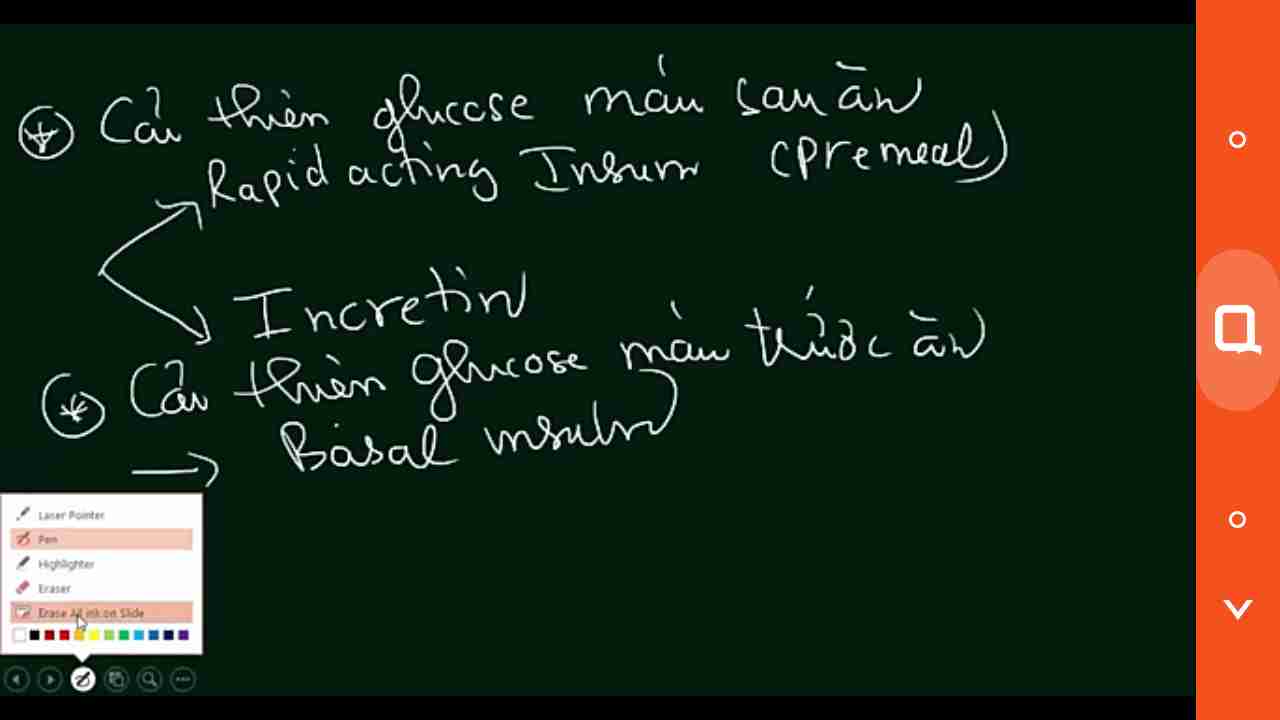 Cải thiện glucose máu sau ăn
Rapid acting Insulin (premeal)
Incretin
Cải thiện glucose máu trước ăn
Basal insulin
Laser Pointer
Pen
Highlighter
Eraser
Erase All ink on Slide